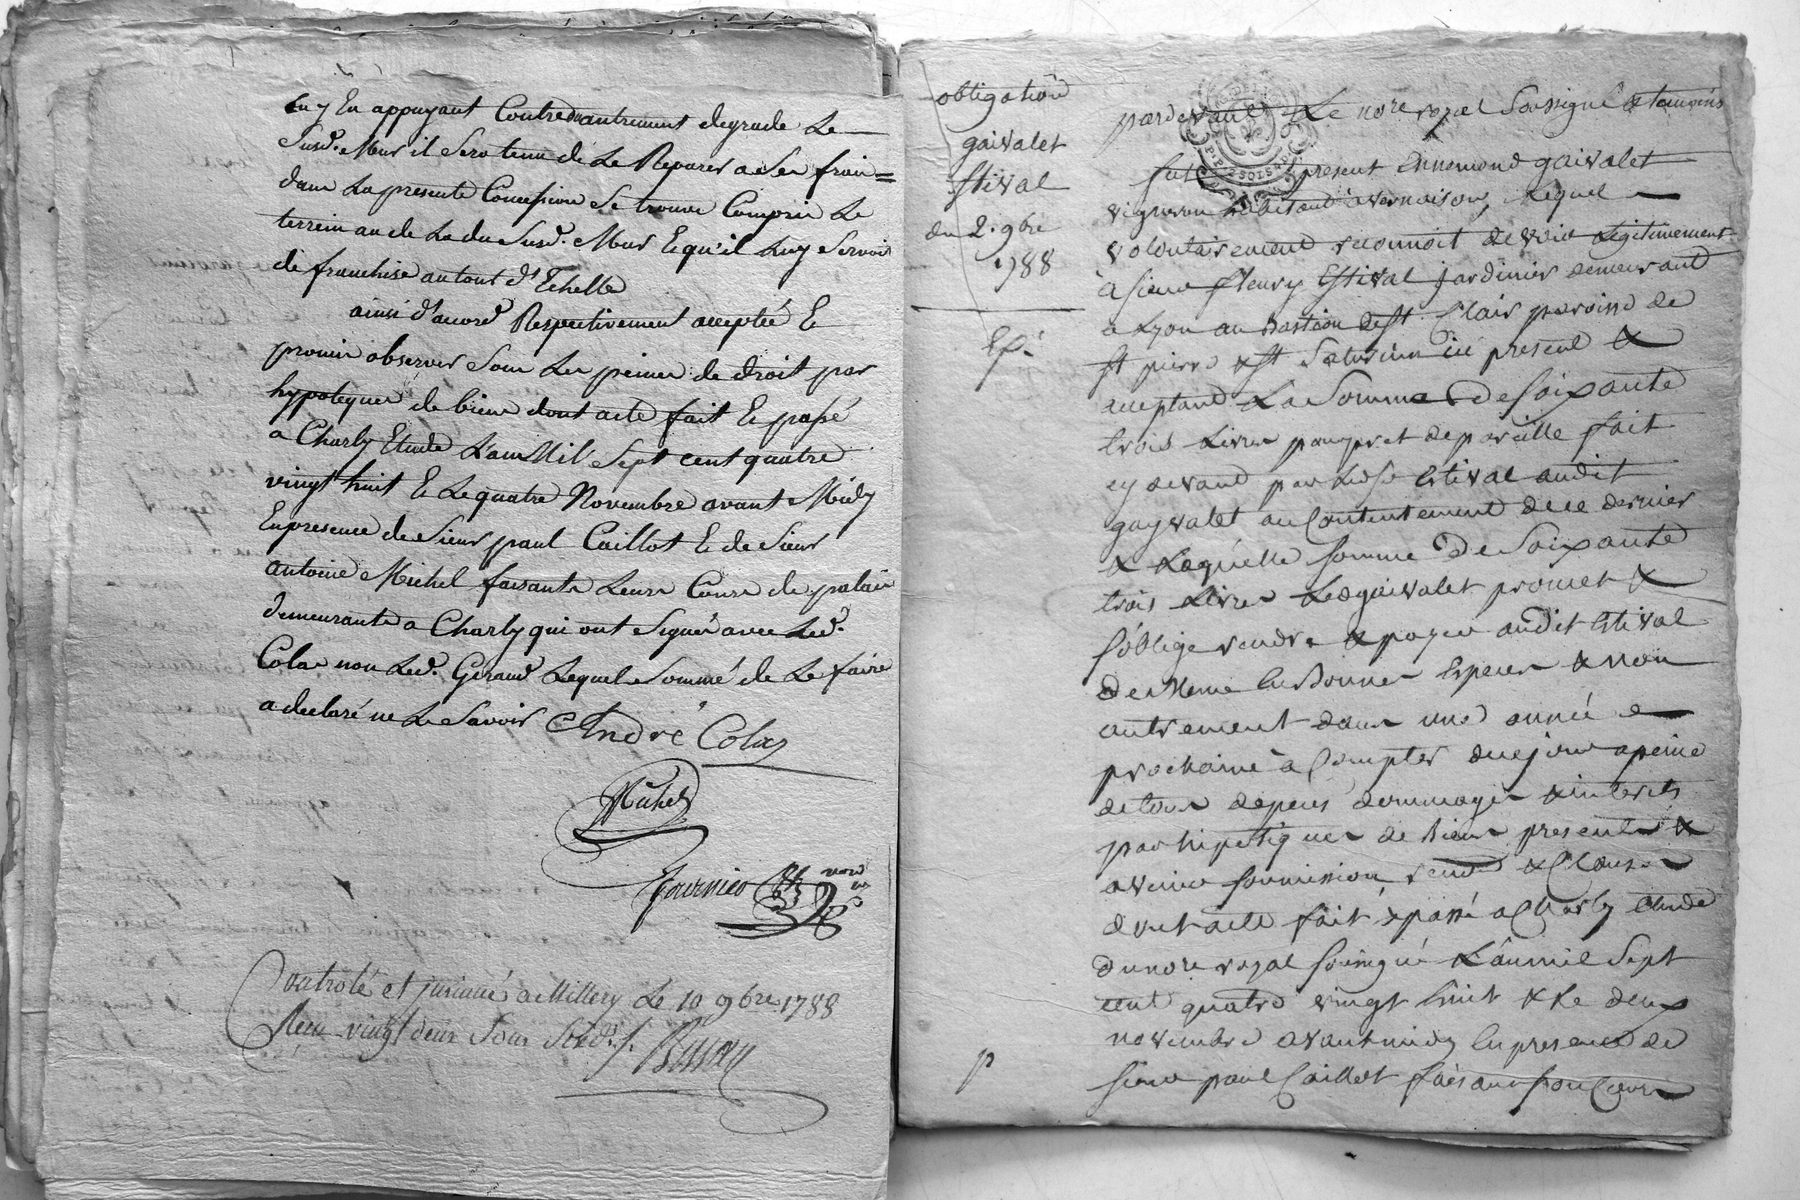 luy En appuyant Contre ou autrement degrade Le
susd. Mur il sera tenu de Le Reparer a ses frais =
dans La presente Concession se trouve Compris Le
terrein au de La du susd. Mur Et qu'il luy servoit
de franchise au tour d'Echelle
ainsi d'accord Respectivement accepté Et
promis observer sous Les peines de droit par
hypoteques de biens dont acte fait Et passé
a Charly Etude L'an Mil Sept cent quatre
vingt huit Et Le quatre Novembre avant Midy
En presence de sieur paul Caillot Et de sieur
antoine Michel faisants Leurs Cours de palais
demeurants a Charly qui ont signés avec Led.
Colas non Led. Giraud Lequel sommé de Le faire
a declaré ne Le savoir André Colas
Michel
Fournier
Controlé et insinué a Millery Le 10 9bre 1788
Reçu vingt deux sous six d. s.
obligation
gaivalet
Stival
du 2. 9bre
1788
Exp.
pardevant Le nore royal soussigné & temoins
fut present Ennemond gaivalet
vigneron habitant à vernaison, Lequel
volontairement reconnoit devoir Légitimement
à sieur fleury Estival jardinier demeurant
a Lyon au Bastion de St. Clair paroisse de
St pierre & St Saturnin ici present &
acceptant La Somme de soixante
trois Livres pour pret de pareille fait
cy devant par Led. Sr Estival audit
gayvalet au Contentement de ce dernier
& Laquelle somme de soixante
trois Livres Led gaivalet promet &
s'oblige rendre & payer audit Estival
de Meme En Bonnes Especes & non
autrement dans une année
prochaine à Compter de ce jour a peine
de tous depens dommages & interets
par hipotéques de Biens presents &
avenir soumission, renon & Clauses
dont acte fait & passé a Charly Etude
du nore royal soussigné L'an mil sept
cent quatre vingt huit & Le deux
novembre avant midy En presence de
sieur paul Caillot faisant son Cours
p